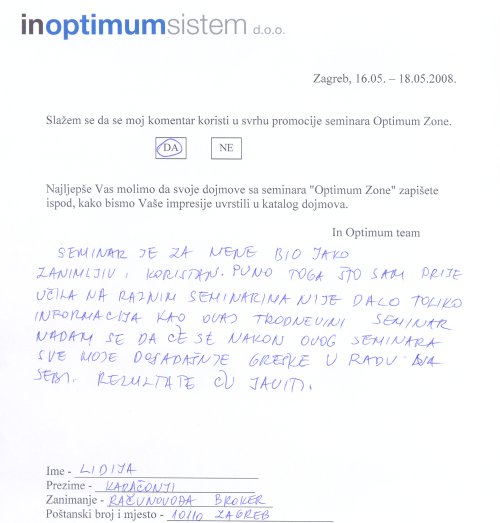 inoptimumsistem d.o.o.
Zagreb, 16.05. – 18.05.2008.
Slažem se da se moj komentar koristi u svrhu promocije seminara Optimum Zone.
DA NE
Najljepše Vas molimo da svoje dojmove sa seminara "Optimum Zone" zapišete
ispod, kako bismo Vaše impresije uvrstili u katalog dojmova.
In Optimum team
SEMINAR JE ZA MENE BIO JAKO
ZANIMLJIV I KORISTAN. PUNO TOGA ŠTO SAM PRIJE
UČILA NA RAZNIM SEMINARIMA NIJE DALO TOLIKO
INFORMACIJA KAO OVAJ TRODNEVNI SEMINAR
NADAM SE DA ĆE SE NAKON OVOG SEMINARA
SVE MOJE DOSADAŠNJE GREŠKE U RADU NA
SEBI. REZULTATE ĆU JAVITI.
Ime - LIDIJA
Prezime -
Zanimanje - RAČUNOVOĐA BROKER
Poštanski broj i mjesto - 10110 ZAGREB